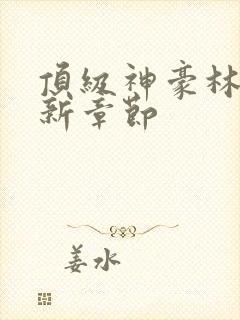 頂級神豪林
新章節
姜水